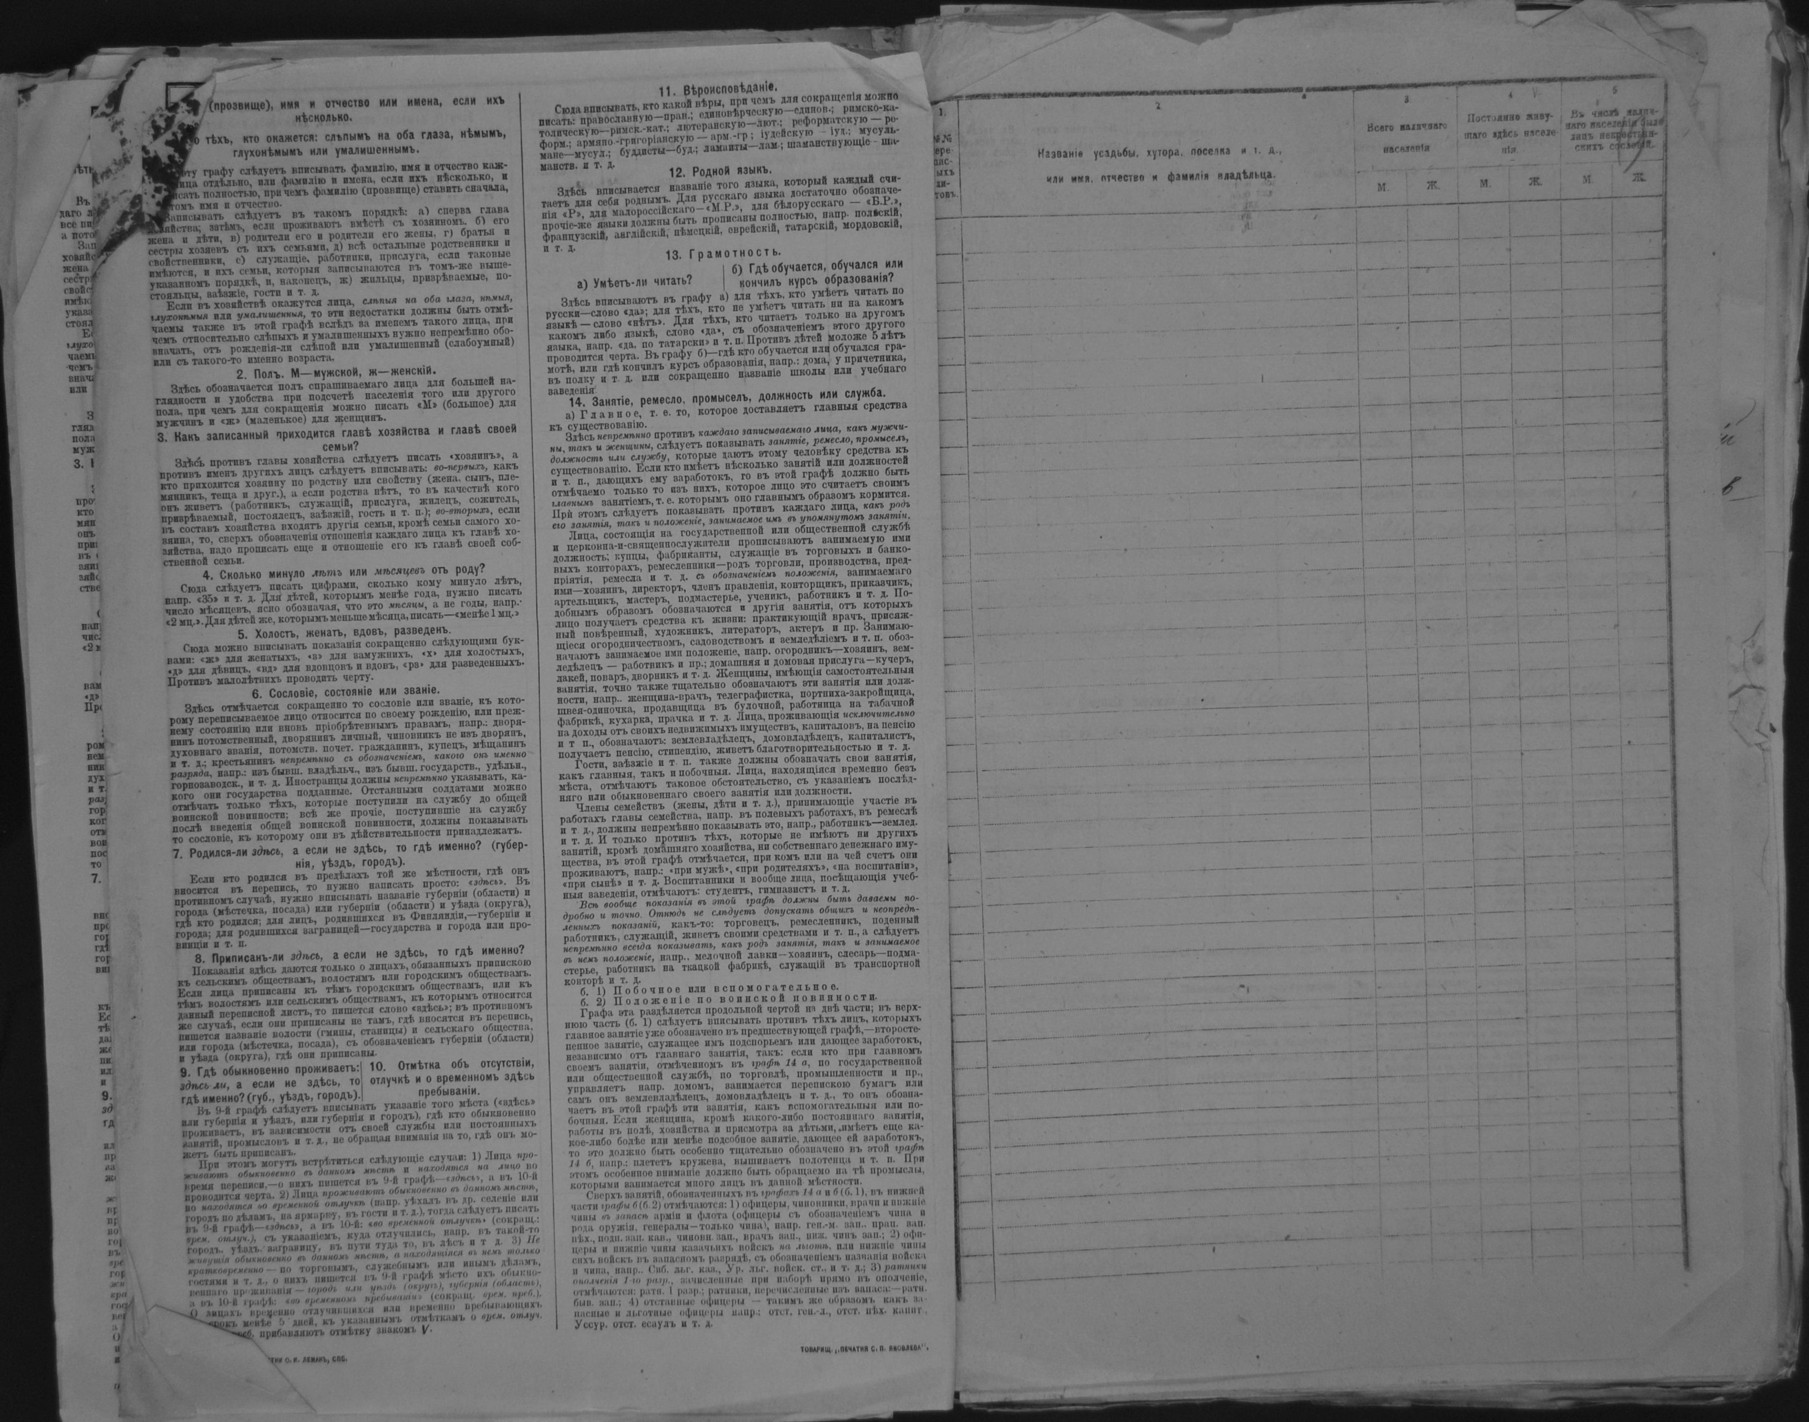 (прозвище), имя и отчество или имена, если ихъ
нѣсколько.
о тѣхъ, кто окажется: слѣпымъ на оба глаза, нѣмымъ,
глухонѣмымъ или умалишеннымъ.
эту графу слѣдуетъ вписывать фамилію, имя и отчество каж-
лица отдѣльно, или фамилію и имена, если ихъ нѣсколько, и
писать полностью, при чемъ фамилію (прозвище) ставить сначала,
потомъ имя и отчество.
Записывать слѣдуетъ въ такомъ порядкѣ: а) сперва глава
хозяйства; затѣмъ, если проживаютъ вмѣстѣ съ хозяиномъ, б) его
жена и дѣти, в) родители его и родители его жены, г) братья и
сестры хозяевъ съ ихъ семьями, д) всѣ остальные родственники и
свойственники, е) служащіе, работники, прислуга, если таковые
имѣются, и ихъ семьи, которыя записываются въ томъ-же выше-
указанномъ порядкѣ, и, наконецъ, ж) жильцы, призрѣваемые, по-
стояльцы, заѣзжіе, гости и т. д.
Если въ хозяйствѣ окажутся лица, слѣпыя на оба глаза, нѣмыя,
глухонѣмыя или умалишенныя, то эти недостатки должны быть отмѣ-
чаемы также въ этой графѣ вслѣдъ за именемъ такого лица, при
чемъ относительно слѣпыхъ и умалишенныхъ нужно непремѣнно обо-
значать, отъ рожденія-ли слѣпой или умалишенный (слабоумный)
или съ такого-то именно возраста.
2. Полъ. М—мужской, ж—женскій.
Здѣсь обозначается полъ спрашиваемаго лица для большей на-
глядности и удобства при подсчетѣ населенія того или другого
пола, при чемъ для сокращенія можно писать «М» (большое) для
мужчинъ и «ж» (маленькое) для женщинъ.
3. Какъ записанный приходится главѣ хозяйства и главѣ своей
семьи?
Здѣсь противъ главы хозяйства слѣдуетъ писать «хозяинъ», а
противъ именъ другихъ лицъ слѣдуетъ вписывать: во-первыхъ, какъ
кто приходится хозяину по родству или свойству (жена, сынъ, пле-
мянникъ, теща и друг.), а если родства нѣтъ, то въ качествѣ кого
онъ живетъ (работникъ, служащій, прислуга, жилецъ, сожитель,
призрѣваемый, постоялецъ, заѣзжій, гость и т. п.); во-вторыхъ, если
въ составъ хозяйства входятъ другія семьи, кромѣ семьи самого хо-
зяина, то, сверхъ обозначенія отношенія каждаго лица къ главѣ хо-
зяйства, надо прописать еще и отношеніе его къ главѣ своей соб-
ственной семьи.
4. Сколько минуло лѣтъ или мѣсяцевъ отъ роду?
Сюда слѣдуетъ писать цифрами, сколько кому минуло лѣтъ,
напр. «35» и т. д. Для дѣтей, которымъ менѣе года, нужно писать
число мѣсяцевъ, ясно обозначая, что это мѣсяцы, а не годы, напр.:
«2 мц.». Для дѣтей же, которымъ меньше мѣсяца, писать—«менѣе 1 мц.»
5. Холостъ, женатъ, вдовъ, разведенъ.
Сюда можно вписывать показанія сокращенно слѣдующими бук-
вами: «ж» для женатыхъ, «з» для замужнихъ, «х» для холостыхъ,
«д» для дѣвицъ, «вд» для вдовцовъ и вдовъ, «рв» для разведенныхъ.
Противъ малолѣтнихъ проводить черту.
6. Сословіе, состояніе или званіе.
Здѣсь отмѣчается сокращенно то сословіе или званіе, къ кото-
рому переписываемое лицо относится по своему рожденію, или преж-
нему состоянію или вновь пріобрѣтеннымъ правамъ, напр.: дворя-
нинъ потомственный, дворянинъ личный, чиновникъ не изъ дворянъ,
духовнаго званія, потомств. почет. гражданинъ, купецъ, мѣщанинъ
и т. д.; крестьянинъ непремѣнно съ обозначеніемъ, какого онъ именно
разряда, напр.: изъ бывш. владѣльч., изъ бывш. государств., удѣльн.,
горнозаводск., и т. д. Иностранцы должны непремѣнно указывать, ка-
кого они государства подданные. Отставными солдатами можно
отмѣчать только тѣхъ, которые поступили на службу до общей
воинской повинности; всѣ же прочіе, поступившіе на службу
послѣ введенія общей воинской повинности, должны показывать
то сословіе, къ которому они въ дѣйствительности принадлежатъ.
7. Родился-ли здѣсь, а если не здѣсь, то гдѣ именно? (губер-
нія, уѣздъ, городъ).
Если кто родился въ предѣлахъ той же мѣстности, гдѣ онъ
вносится въ перепись, то нужно написать просто: «здѣсь». Въ
противномъ случаѣ, нужно вписывать названіе губерніи (области) и
города (мѣстечка, посада) или губерніи (области) и уѣзда (округа),
гдѣ кто родился; для лицъ, родившихся въ Финляндіи,—губерніи и
города; для родившихся заграницей—государства и города или про-
винціи и т. п.
8. Приписанъ-ли здѣсь, а если не здѣсь, то гдѣ именно?
Показанія здѣсь даются только о лицахъ, обязанныхъ припискою
къ сельскимъ обществамъ, волостямъ или городскимъ обществамъ.
Если лица приписаны къ тѣмъ городскимъ обществамъ, или къ
тѣмъ волостямъ или сельскимъ обществамъ, къ которымъ относится
данный переписной листъ, то пишется слово «здѣсь»; въ противномъ
же случаѣ, если они приписаны не тамъ, гдѣ вносятся въ перепись,
пишется названіе волости (гмины, станицы) и сельскаго общества,
или города (мѣстечка, посада), съ обозначеніемъ губерніи (области)
и уѣзда (округа), гдѣ они приписаны.
9. Гдѣ обыкновенно проживаетъ:
здѣсь ли, а если не здѣсь, то
гдѣ именно? (губ., уѣздъ, городъ).
10. Отмѣтка объ отсутствіи,
отлучкѣ и о временномъ здѣсь
пребываніи.
Въ 9-й графѣ слѣдуетъ вписывать указаніе того мѣста («здѣсь»
или губернія и уѣздъ, или губернія и городъ), гдѣ кто обыкновенно
проживаетъ, въ зависимости отъ своей службы или постоянныхъ
занятій, промысловъ и т. д., не обращая вниманія на то, гдѣ онъ мо-
жетъ быть приписанъ.
При этомъ могутъ встрѣтиться слѣдующіе случаи: 1) Лица про-
живаютъ обыкновенно въ данномъ мѣстѣ и находятся на лицо во
время переписи,—о нихъ пишется въ 9-й графѣ—«здѣсь», а въ 10-й
проводится черта. 2) Лица проживаютъ обыкновенно въ данномъ мѣстѣ,
но находятся во временной отлучкѣ (напр. уѣхалъ въ др. селеніе или
городъ по дѣламъ, на ярмарку, въ гости и т. д.), тогда слѣдуетъ писать
въ 9-й графѣ—«здѣсь», а въ 10-й: «во временной отлучкѣ» (сокращ.:
врем. отлуч.), съ указаніемъ, куда отлучились, напр. въ такой-то
городъ, уѣздъ, заграницу, въ пути туда то, въ лѣсъ и т. д. 3) Не
живущія обыкновенно въ данномъ мѣстѣ, а находящіяся въ немъ только
кратковременно — по торговымъ, служебнымъ или инымъ дѣламъ,
гостями и т. д., о нихъ пишется въ 9-й графѣ мѣсто ихъ обыкно-
веннаго проживанія — городъ или уѣздъ (округъ), губернія (область),
а въ 10-й графѣ: «во временномъ пребываніи» (сокращ. врем. преб.).
О лицахъ временно отлучившихся или временно пребывающихъ
срокъ менѣе 5 дней, къ указаннымъ отмѣткамъ о врем. отлуч.
преб. прибавляютъ отмѣтку знакомъ V.
О. И. ЛЕМАНЪ, СПБ.
11. Вѣроисповѣданіе.
Сюда вписывать, кто какой вѣры, при чемъ для сокращенія можно
писать: православную—прав.; единовѣрческую—единов.; римско-ка-
толическую—римск.-кат.; лютеранскую—лют.; реформатскую — ре-
форм.; армяно-григоріанскую — арм.-гр.; іудейскую — іуд.; мусуль-
мане—мусул.; буддисты—буд.; ламаиты—лам.; шаманствующіе — ша-
манств. и т. д.
12. Родной языкъ.
Здѣсь вписывается названіе того языка, который каждый счи-
таетъ для себя роднымъ. Для русскаго языка достаточно обозначе-
нія «Р», для малороссійскаго—«М.Р.», для бѣлорусскаго — «Б.Р.»,
прочіе-же языки должны быть прописаны полностью, напр. польскій,
французскій, англійскій, нѣмецкій, еврейскій, татарскій, мордовскій,
и т. д.
13. Грамотность.
а) Умѣетъ-ли читать?
б) Гдѣ обучается, обучался или
кончилъ курсъ образованія?
Здѣсь вписываютъ въ графу а) для тѣхъ, кто умѣетъ читать по
русски—слово «да»; для тѣхъ, кто не умѣетъ читать ни на какомъ
языкѣ — слово «нѣтъ». Для тѣхъ, кто читаетъ только на другомъ
какомъ либо языкѣ, слово «да», съ обозначеніемъ этого другого
языка, напр. «да, по татарски» и т. п. Противъ дѣтей моложе 5 лѣтъ
проводится черта. Въ графу б)—гдѣ кто обучается или обучался гра-
мотѣ, или гдѣ кончилъ курсъ образованія, напр.: дома, у причетника,
въ полку и т. д. или сокращенно названіе школы или учебнаго
заведенія
14. Занятіе, ремесло, промыселъ, должность или служба.
а) Главное, т. е. то, которое доставляетъ главныя средства
къ существованію.
Здѣсь непремѣнно противъ каждаго записываемаго лица, какъ мужчи-
ны, такъ и женщины, слѣдуетъ показывать занятіе, ремесло, промыселъ,
должность или службу, которые даютъ этому человѣку средства къ
существованію. Если кто имѣетъ нѣсколько занятій или должностей
и т. п., дающихъ ему заработокъ, то въ этой графѣ должно быть
отмѣчаемо только то изъ нихъ, которое лицо это считаетъ своимъ
главнымъ занятіемъ, т. е. которымъ оно главнымъ образомъ кормится.
При этомъ слѣдуетъ показывать противъ каждаго лица, какъ родъ
его занятія, такъ и положеніе, занимаемое имъ въ упомянутомъ занятіи.
Лица, состоящія на государственной или общественной службѣ
и церковно-и-священнослужители прописываютъ занимаемую ими
должность; купцы, фабриканты, служащіе въ торговыхъ и банко-
выхъ конторахъ, ремесленники—родъ торговли, производства, пред-
пріятія, ремесла и т. д. съ обозначеніемъ положенія, занимаемаго
ими—хозяинъ, директоръ, членъ правленія, конторщикъ, приказчикъ,
артельщикъ, мастеръ, подмастерье, ученикъ, работникъ и т. д. По-
добнымъ образомъ обозначаются и другія занятія, отъ которыхъ
лицо получаетъ средства къ жизни: практикующій врачъ, присяж-
ный повѣренный, художникъ, литераторъ, актеръ и пр. Занимаю-
щіеся огородничествомъ, садоводствомъ и земледѣліемъ и т. п. обоз-
начаютъ занимаемое ими положеніе, напр. огородникъ—хозяинъ, зем-
ледѣлецъ — работникъ и пр.; домашняя и домовая прислуга—кучеръ,
лакей, поваръ, дворникъ и т. д. Женщины, имѣющія самостоятельныя
занятія, точно также тщательно обозначаютъ эти занятія или долж-
ности, напр.. женщина-врачъ, телеграфистка, портниха-закройщица,
швея-одиночка, продавщица въ булочной, работница на табачной
фабрикѣ, кухарка, прачка и т. д. Лица, проживающія исключительно
на доходы отъ своихъ недвижимыхъ имуществъ, капиталовъ, на пенсію
и т п., обозначаютъ: землевладѣлецъ, домовладѣлецъ, капиталистъ,
получаетъ пенсію, стипендію, живетъ благотворительностью и т. д.
Гости, заѣзжіе и т. п. также должны обозначать свои занятія,
какъ главныя, такъ и побочныя. Лица, находящіяся временно безъ
мѣста, отмѣчаютъ таковое обстоятельство, съ указаніемъ послѣд-
няго или обыкновеннаго своего занятія или должности.
Члены семействъ (жены, дѣти и т. д.), принимающіе участіе въ
работахъ главы семейства, напр. въ полевыхъ работахъ, въ ремеслѣ
и т д., должны непремѣнно показывать это, напр., работникъ—землед.
и т. д. И только противъ тѣхъ, которые не имѣютъ ни другихъ
занятій, кромѣ домашняго хозяйства, ни собственнаго денежнаго иму-
щества, въ этой графѣ отмѣчается, при комъ или на чей счетъ они
проживаютъ, напр.: «при мужѣ», «при родителяхъ», «на воспитаніи»,
«при сынѣ» и т. д. Воспитанники и вообще лица, посѣщающія учеб-
ныя заведенія, отмѣчаютъ: студентъ, гимназистъ и т. д.
Всѣ вообще показанія въ этой графѣ должны быть даваемы по-
дробно и точно. Отнюдь не слѣдуетъ допускать общихъ и неопредѣ-
ленныхъ показаній, какъ-то: торговецъ, ремесленникъ, поденный
работникъ, служащій, живетъ своими средствами и т. п., а слѣдуетъ
непремѣнно всегда показывать, какъ родъ занятія, такъ и занимаемое
въ немъ положеніе, напр.. мелочной лавки—хозяинъ, слесарь—подма-
стерье, работникъ на ткацкой фабрикѣ, служащій въ транспортной
конторѣ и т. д.
б. 1) Побочное или вспомогательное.
б. 2) Положеніе по воинской повинности.
Графа эта раздѣляется продольной чертой на двѣ части; въ верх-
нюю часть (б. 1) слѣдуетъ вписывать противъ тѣхъ лицъ, которыхъ
главное занятіе уже обозначено въ предшествующей графѣ,—второсте-
пенное занятіе, служащее имъ подспорьемъ или дающее заработокъ,
независимо отъ главнаго занятія, такъ: если кто при главномъ
своемъ занятіи, отмѣченномъ въ графѣ 14 а, по государственной
или общественной службѣ, по торговлѣ, промышленности и пр.,
управляетъ напр. домомъ, занимается перепискою бумагъ или
самъ онъ землевладѣлецъ, домовладѣлецъ и т. д., то онъ обозна-
чаетъ въ этой графѣ эти занятія, какъ вспомогательныя или по-
бочныя. Если женщина, кромѣ какого-либо постояннаго занятія,
работы въ полѣ, хозяйства и присмотра за дѣтьми, имѣетъ еще ка-
кое-либо болѣе или менѣе подсобное занятіе, дающее ей заработокъ,
то это должно быть особенно тщательно обозначено въ этой графѣ
14 б, напр.: плететъ кружева, вышиваетъ полотенца и т. п. При
этомъ особенное вниманіе должно быть обращаемо на тѣ промыслы,
которыми занимается много лицъ въ данной мѣстности.
Сверхъ занятій, обозначенныхъ въ графахъ 14 а и б (б. 1), въ нижней
части графы б (б. 2) отмѣчаются: 1) офицеры, чиновники, врачи и нижніе
чины въ запасѣ арміи и флота (офицеры съ обозначеніемъ чина и
рода оружія, генералы—только чина), напр. ген.-м. зап., прап. зап.
пѣх., подп. зап. кав., чиновн. зап., врачъ зап., ниж. чинъ зап.; 2) офи-
церы и нижніе чины казачьихъ войскъ на льготѣ, или нижніе чины
сихъ войскъ въ запасномъ разрядѣ, съ обозначеніемъ названія войска
и чина, напр. Сиб. льг. каз., Ур. льг. войск. ст., и т. д.; 3) ратники
ополченія 1-го разр., зачисленные при наборѣ прямо въ ополченіе,
отмѣчаются: ратн. 1 разр.; ратники, перечисленные изъ запаса:—ратн.
быв. зап.; 4) отставные офицеры — такимъ же образомъ какъ за-
пасные и льготные офицеры напр.: отст. ген.-л., отст. пѣх. капит.
Уссур. отст. есаулъ и т. д.
ТОВАРИЩ. „ПЕЧАТНЯ С. П. ЯКОВЛЕВА".
1.
2
3
4
5
Названіе усадьбы, хутора, поселка и т. д.,
или имя, отчество и фамилія владѣльца.
Всего наличнаго
населенія
Постоянно живу-
щаго здѣсь населе-
нія.
Въ числѣ налич-
наго населенія было
лицъ некрестьян-
скихъ сословій.
М.
Ж.
М.
Ж.
М.
Ж.